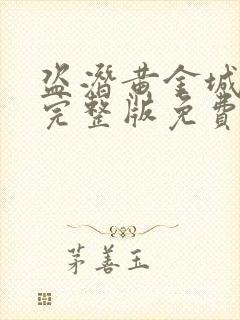 盗潜黄金城
完整版免費
茅善玉